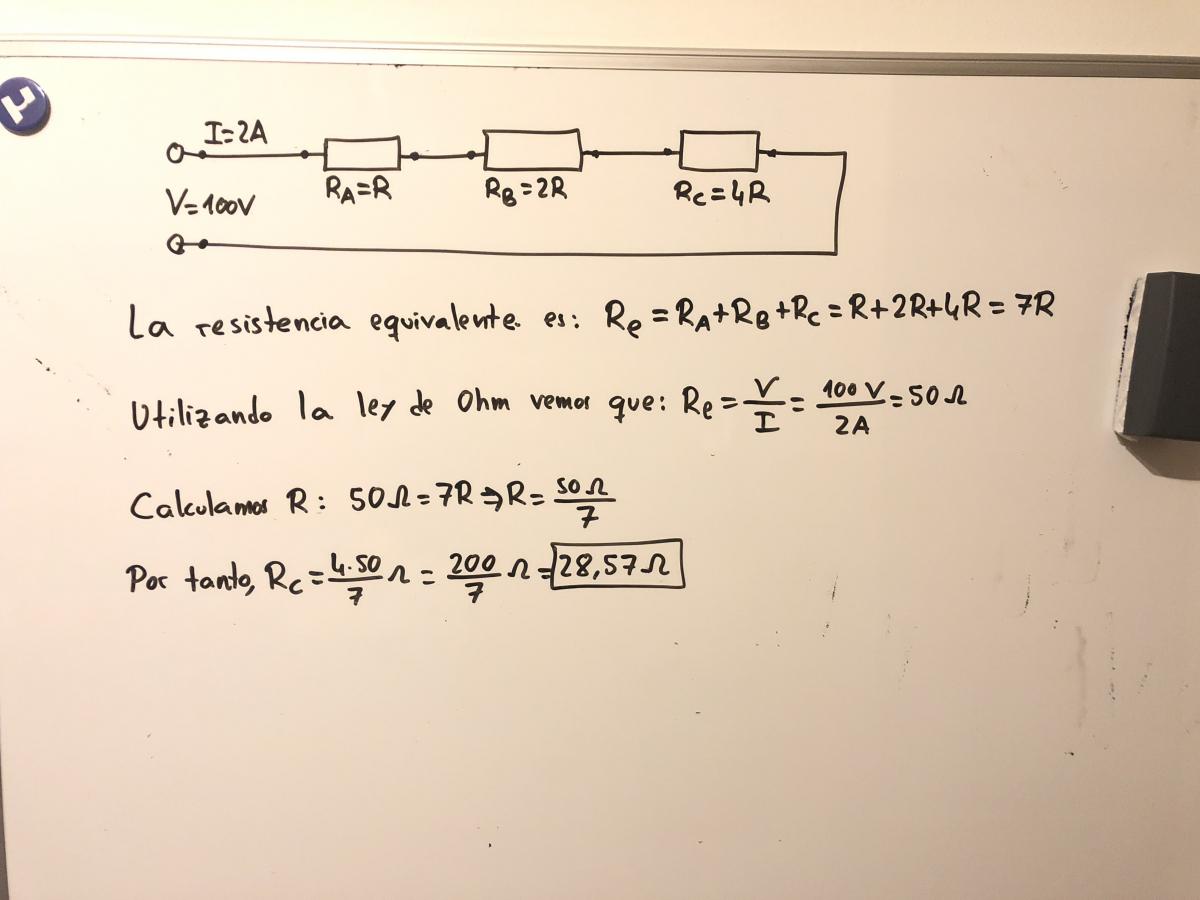 I=2A
R_A=R
R_B=2R
R_C=4R
V=100V
La resistencia equivalente. es: R_e = R_A+R_B+R_C = R+2R+4R = 7R
Utilizando la ley de Ohm vemos que: R_e = V/I = 100 V/2A = 50 Ω
Calculamos R: 50Ω = 7R ⇒ R = 50 Ω/7
Por tanto, R_C = 4·50/7 Ω = 200/7 Ω = 28,57Ω